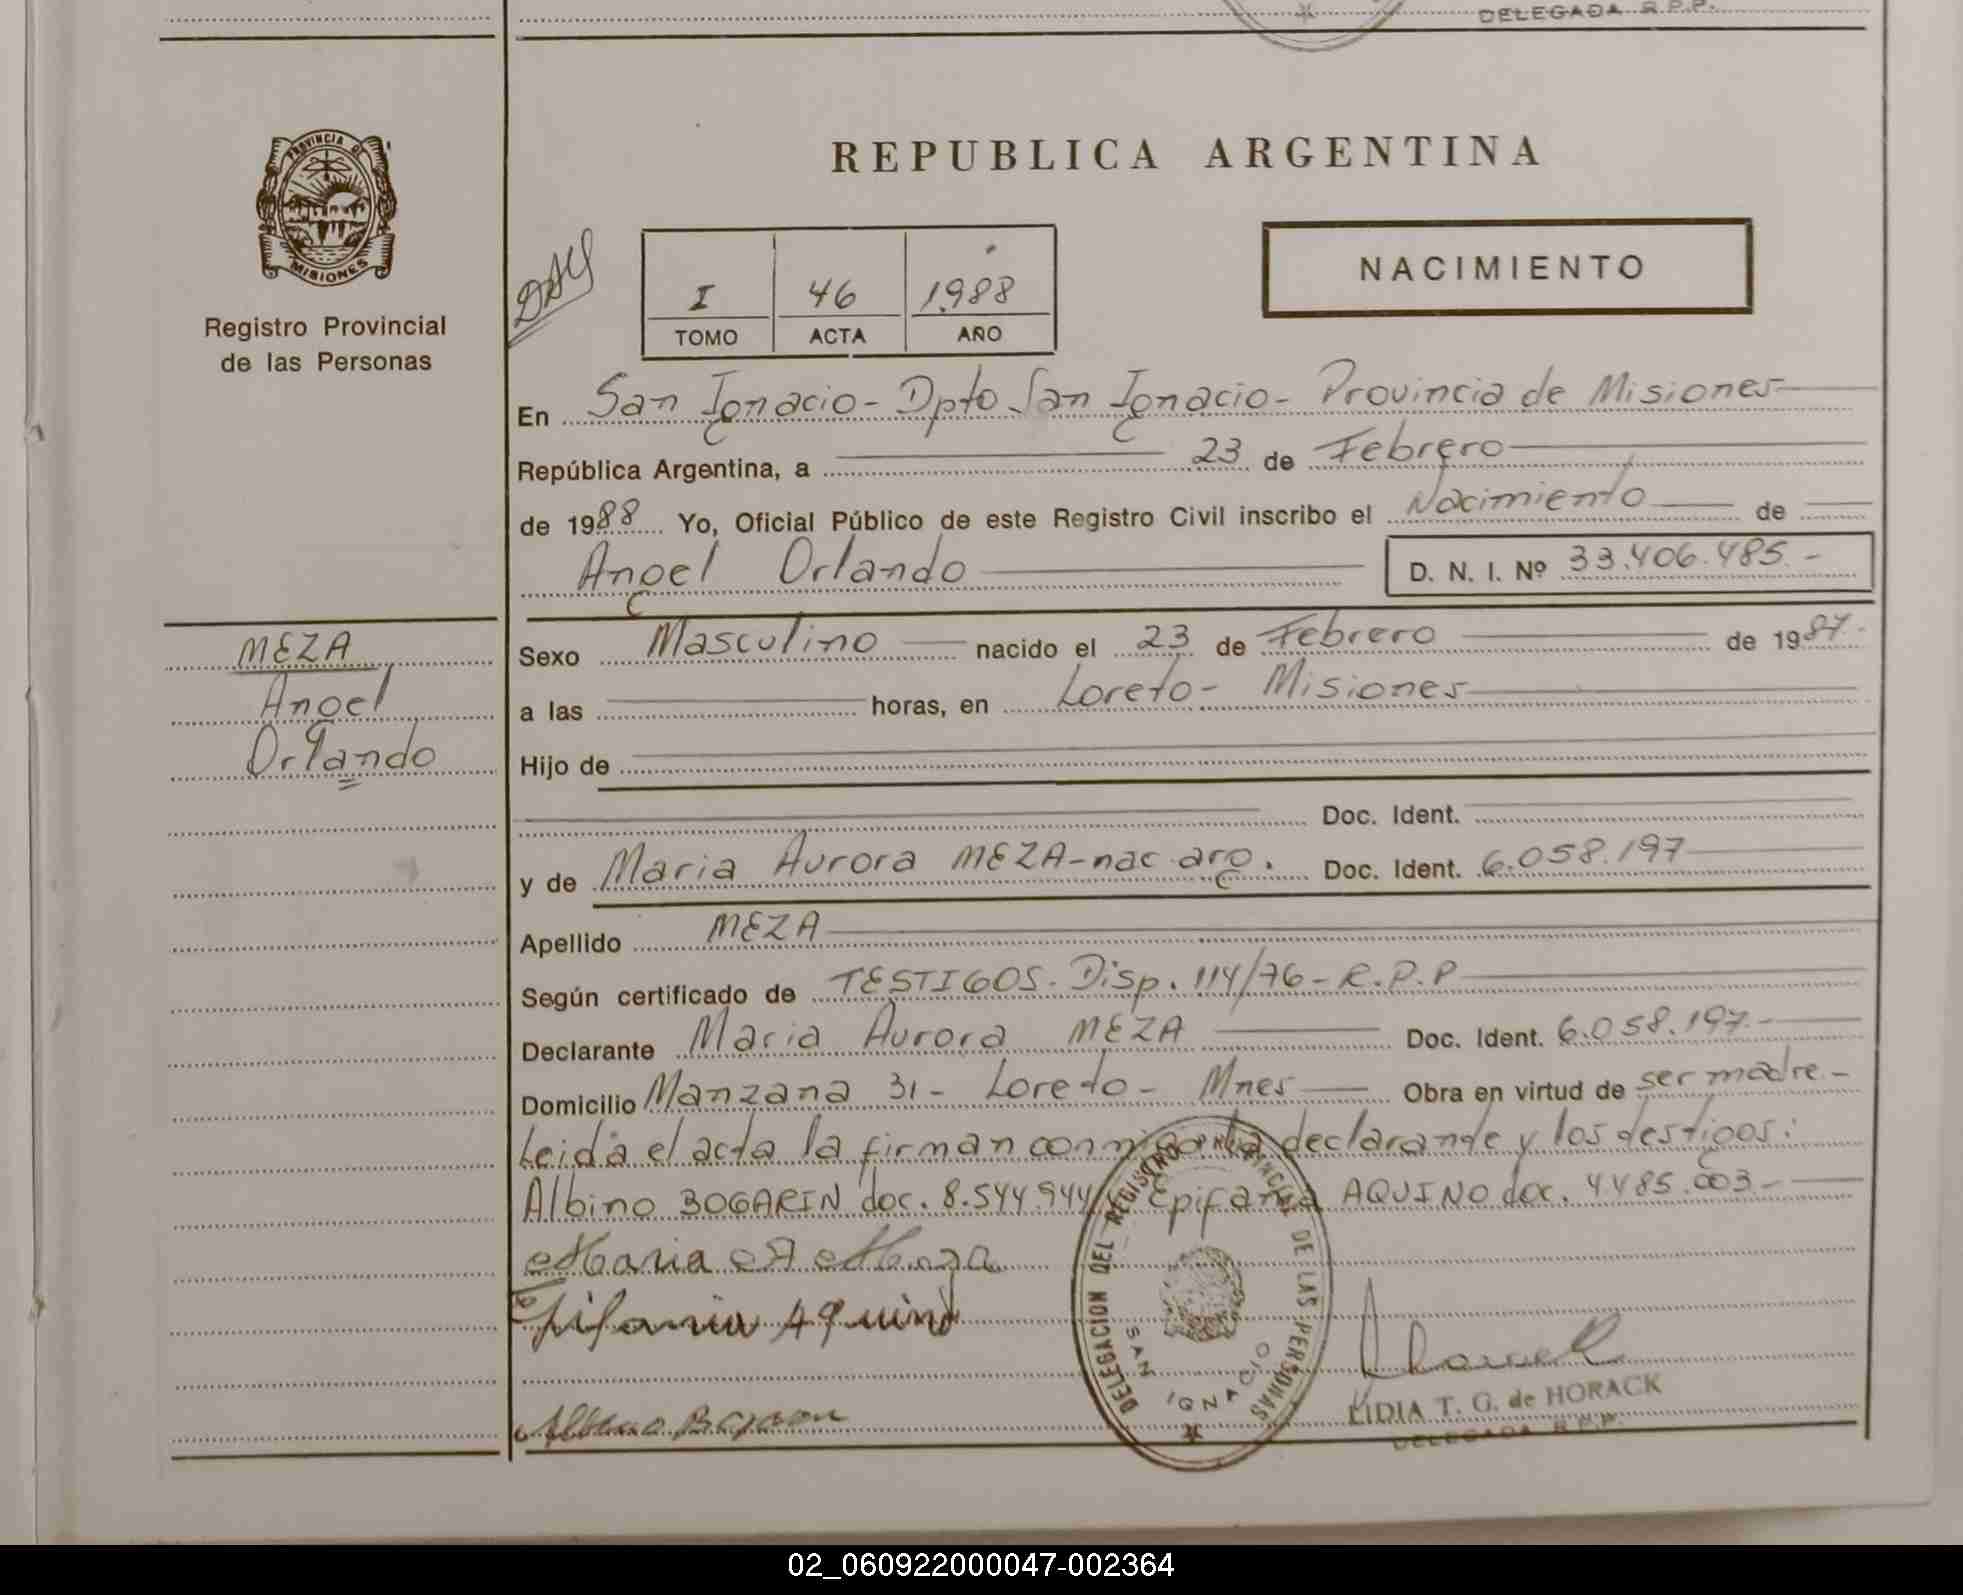 DELEGADA R.P.P.
PROVINCIA DE
MISIONES
Registro Provincial
de las Personas
REPUBLICA ARGENTINA
NACIMIENTO
I 46 1988
TOMO ACTA AÑO
En San Ignacio - Dpto San Ignacio - Provincia de Misiones
República Argentina, a 23 de Febrero
de 1988 Yo, Oficial Público de este Registro Civil inscribo el Nacimiento de
Angel Orlando D. N. I. Nº 33.406.485.-
MEZA
Angel
Orlando
Sexo Masculino nacido el 23 de Febrero de 1987.
a las horas, en Loreto - Misiones
Hijo de
Doc. Ident.
y de Maria Aurora MEZA - nac. arg. Doc. Ident. 6.058.197
Apellido MEZA
Según certificado de TESTIGOS. Disp. 114/76 - R.P.P
Declarante Maria Aurora MEZA Doc. Ident. 6.058.197.-
Domicilio Manzana 31 - Loreto - Mnes Obra en virtud de ser madre -
Leida el acta la firman conmigo la declarante y los testigos:
Albino BOGARIN doc. 8.544.944 Epifania AQUINO doc. 4.485.003 -
Maria A Meza
Epifania Aquino
DELEGACION DEL REGISTRO PROVINCIAL DE LAS PERSONAS
SAN IGNACIO
LIDIA T. G. de HORACK
DELEGADA R.P.P.
02_060922000047-002364